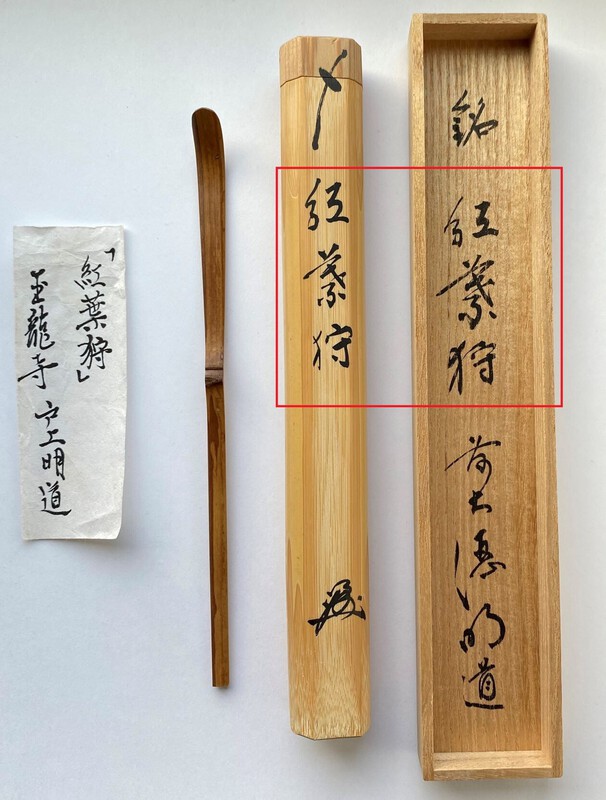 銘 紅葉狩 前大德明道
〆 紅葉狩
「紅葉狩」
玉龍寺 戸上明道